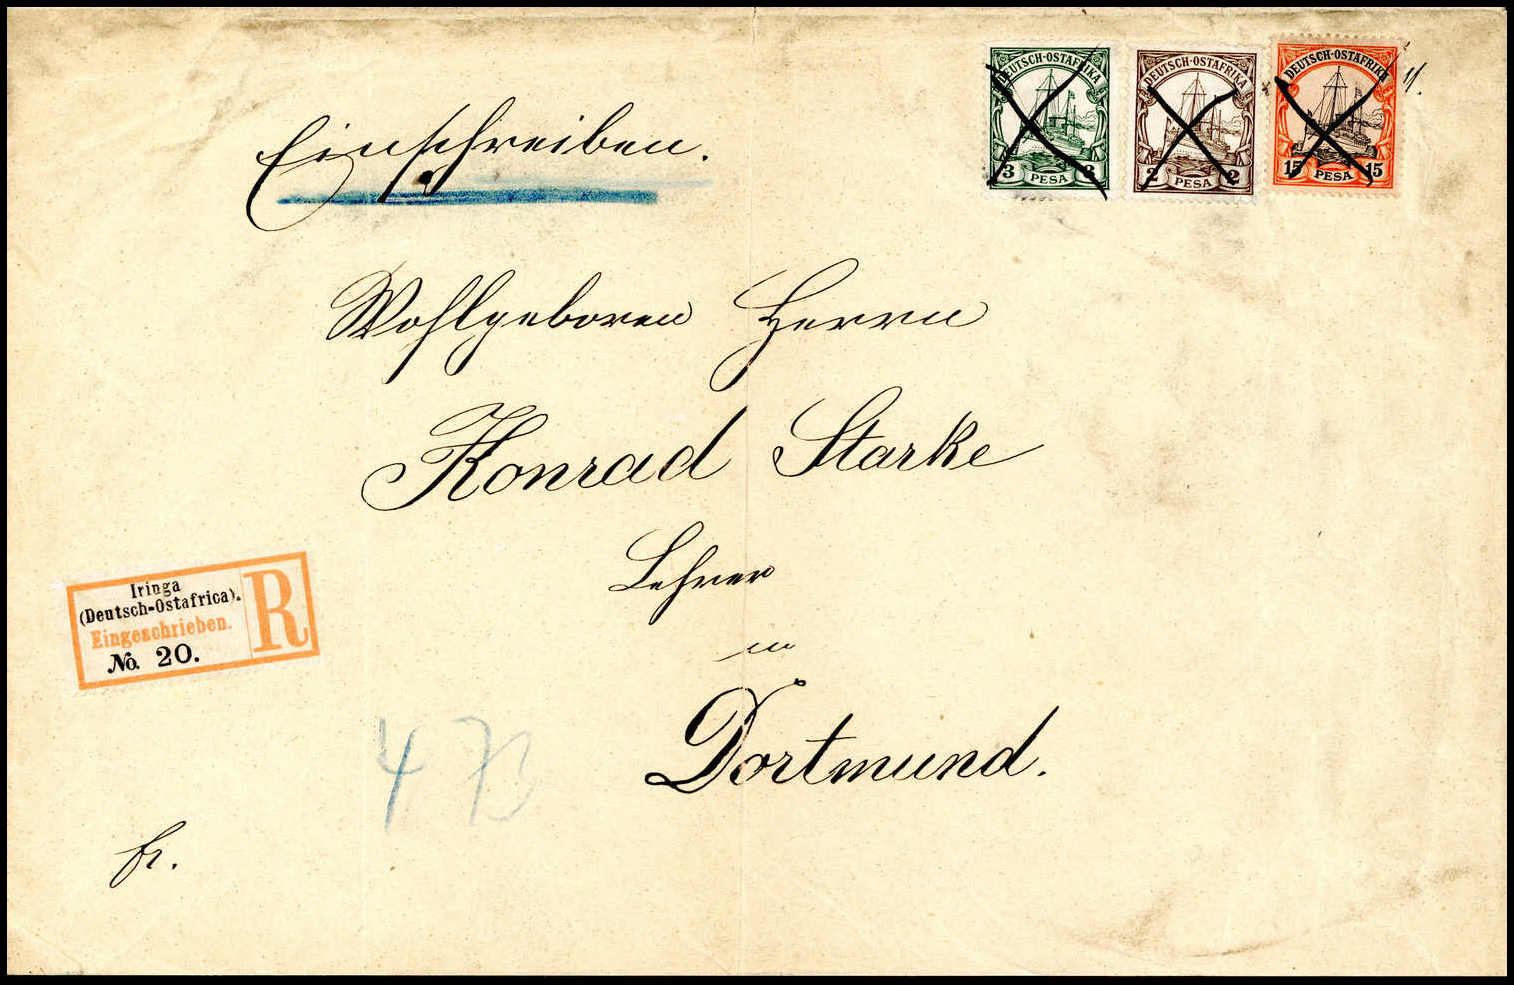 Einschreiben.
DEUTSCH-OSTAFRIKA
3 PESA 3
DEUTSCH-OSTAFRIKA
2 PESA 2
DEUTSCH-OSTAFRIKA
15 PESA 15
Wohlgeboren Herrn
Konrad Starke
Lehrer
in
Dortmund.
Iringa
(Deutsch-Ostafrica).
Eingeschrieben.
R
No. 20.
473
fr.